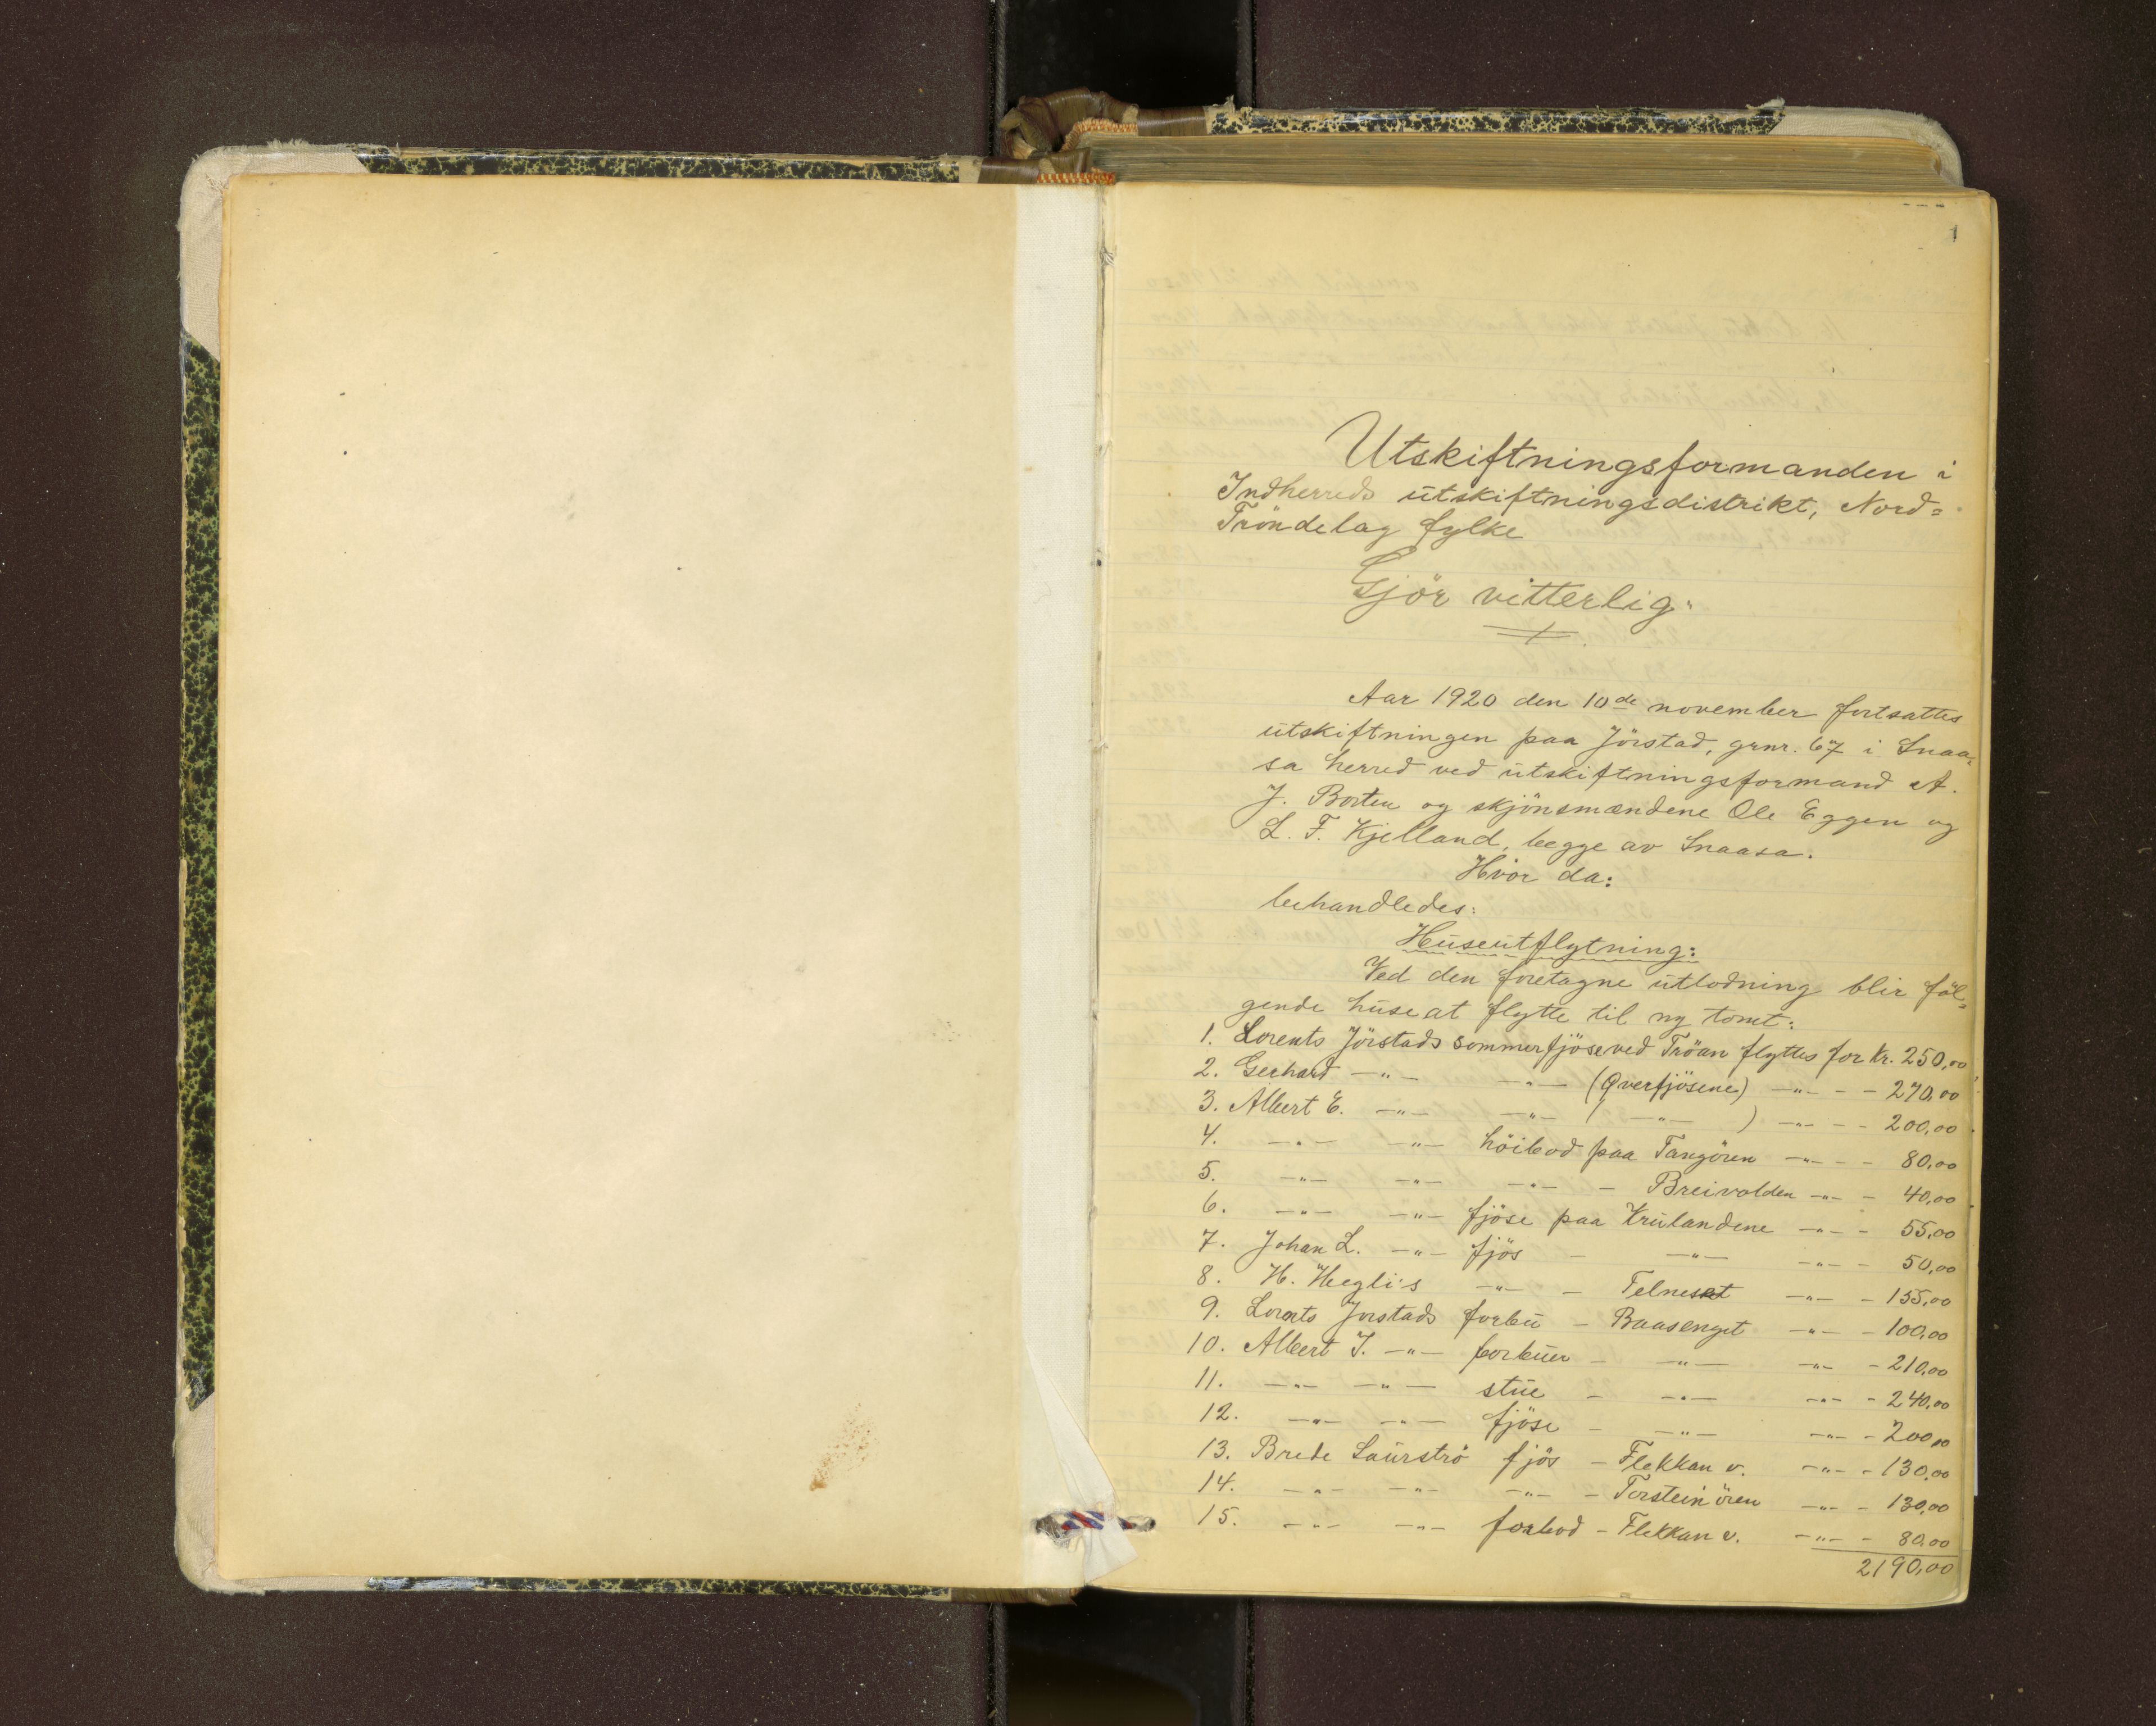 1
Utskiftningsformanden i
Indherreds utskiftningsdistrikt, Nord=
Tröndelag fylke
Gjör vitterlig:
Aar 1920 den 10de november fortsattes
utskiftningen paa Jörstad, grnr. 67 i Snaa=
sa herred ved utskiftningsformand A.
J. Borten og skjönsmændene Ole Eggen og
L. F. Kjelland, begge av Snaasa.
Hvor da:
behandledes:
Huseutflytning:
Ved den foretagne utlodning blir föl=
gende huse at flytte til ny tomt:
1. Lorents Jörstads sommerfjöse ved Tröan flyttes for kr. 250,00
2. Gerhard —"— —"— (Qverfjösene) —"— - - 270,00
3. Albert E. —"— —"— ( —"— ) —"— - - 200,00
4. —"— —"— höibod paa Tangören —"— - - 80,00
5. —"— —"— —"— - Breivolden —"— - 40,00
6. —"— —"— fjöse paa Krulandene —"— - 55,00
7. Johan L. —"— fjös - —"— —"— - 50,00
8. H. Heglis —"— - Felneset —"— - 155,00
9. Lorents Jorstads forbu - Baasenget —"— - 100,00
10. Albert J. —"— forbuer - —"— —"— - 210,00
11. —"— —"— stue - —"— —"— - 240,00
12. —"— —"— fjöse - —"— —"— - 200,00
13. Brede Saurströ fjös - Flekkan v. —"— - 130,00
14. —"— —"— —"— - Torsteinören —"— - 130,00
15. —"— —"— forbod - Flekkan v. —"— - 80,00
2190,00